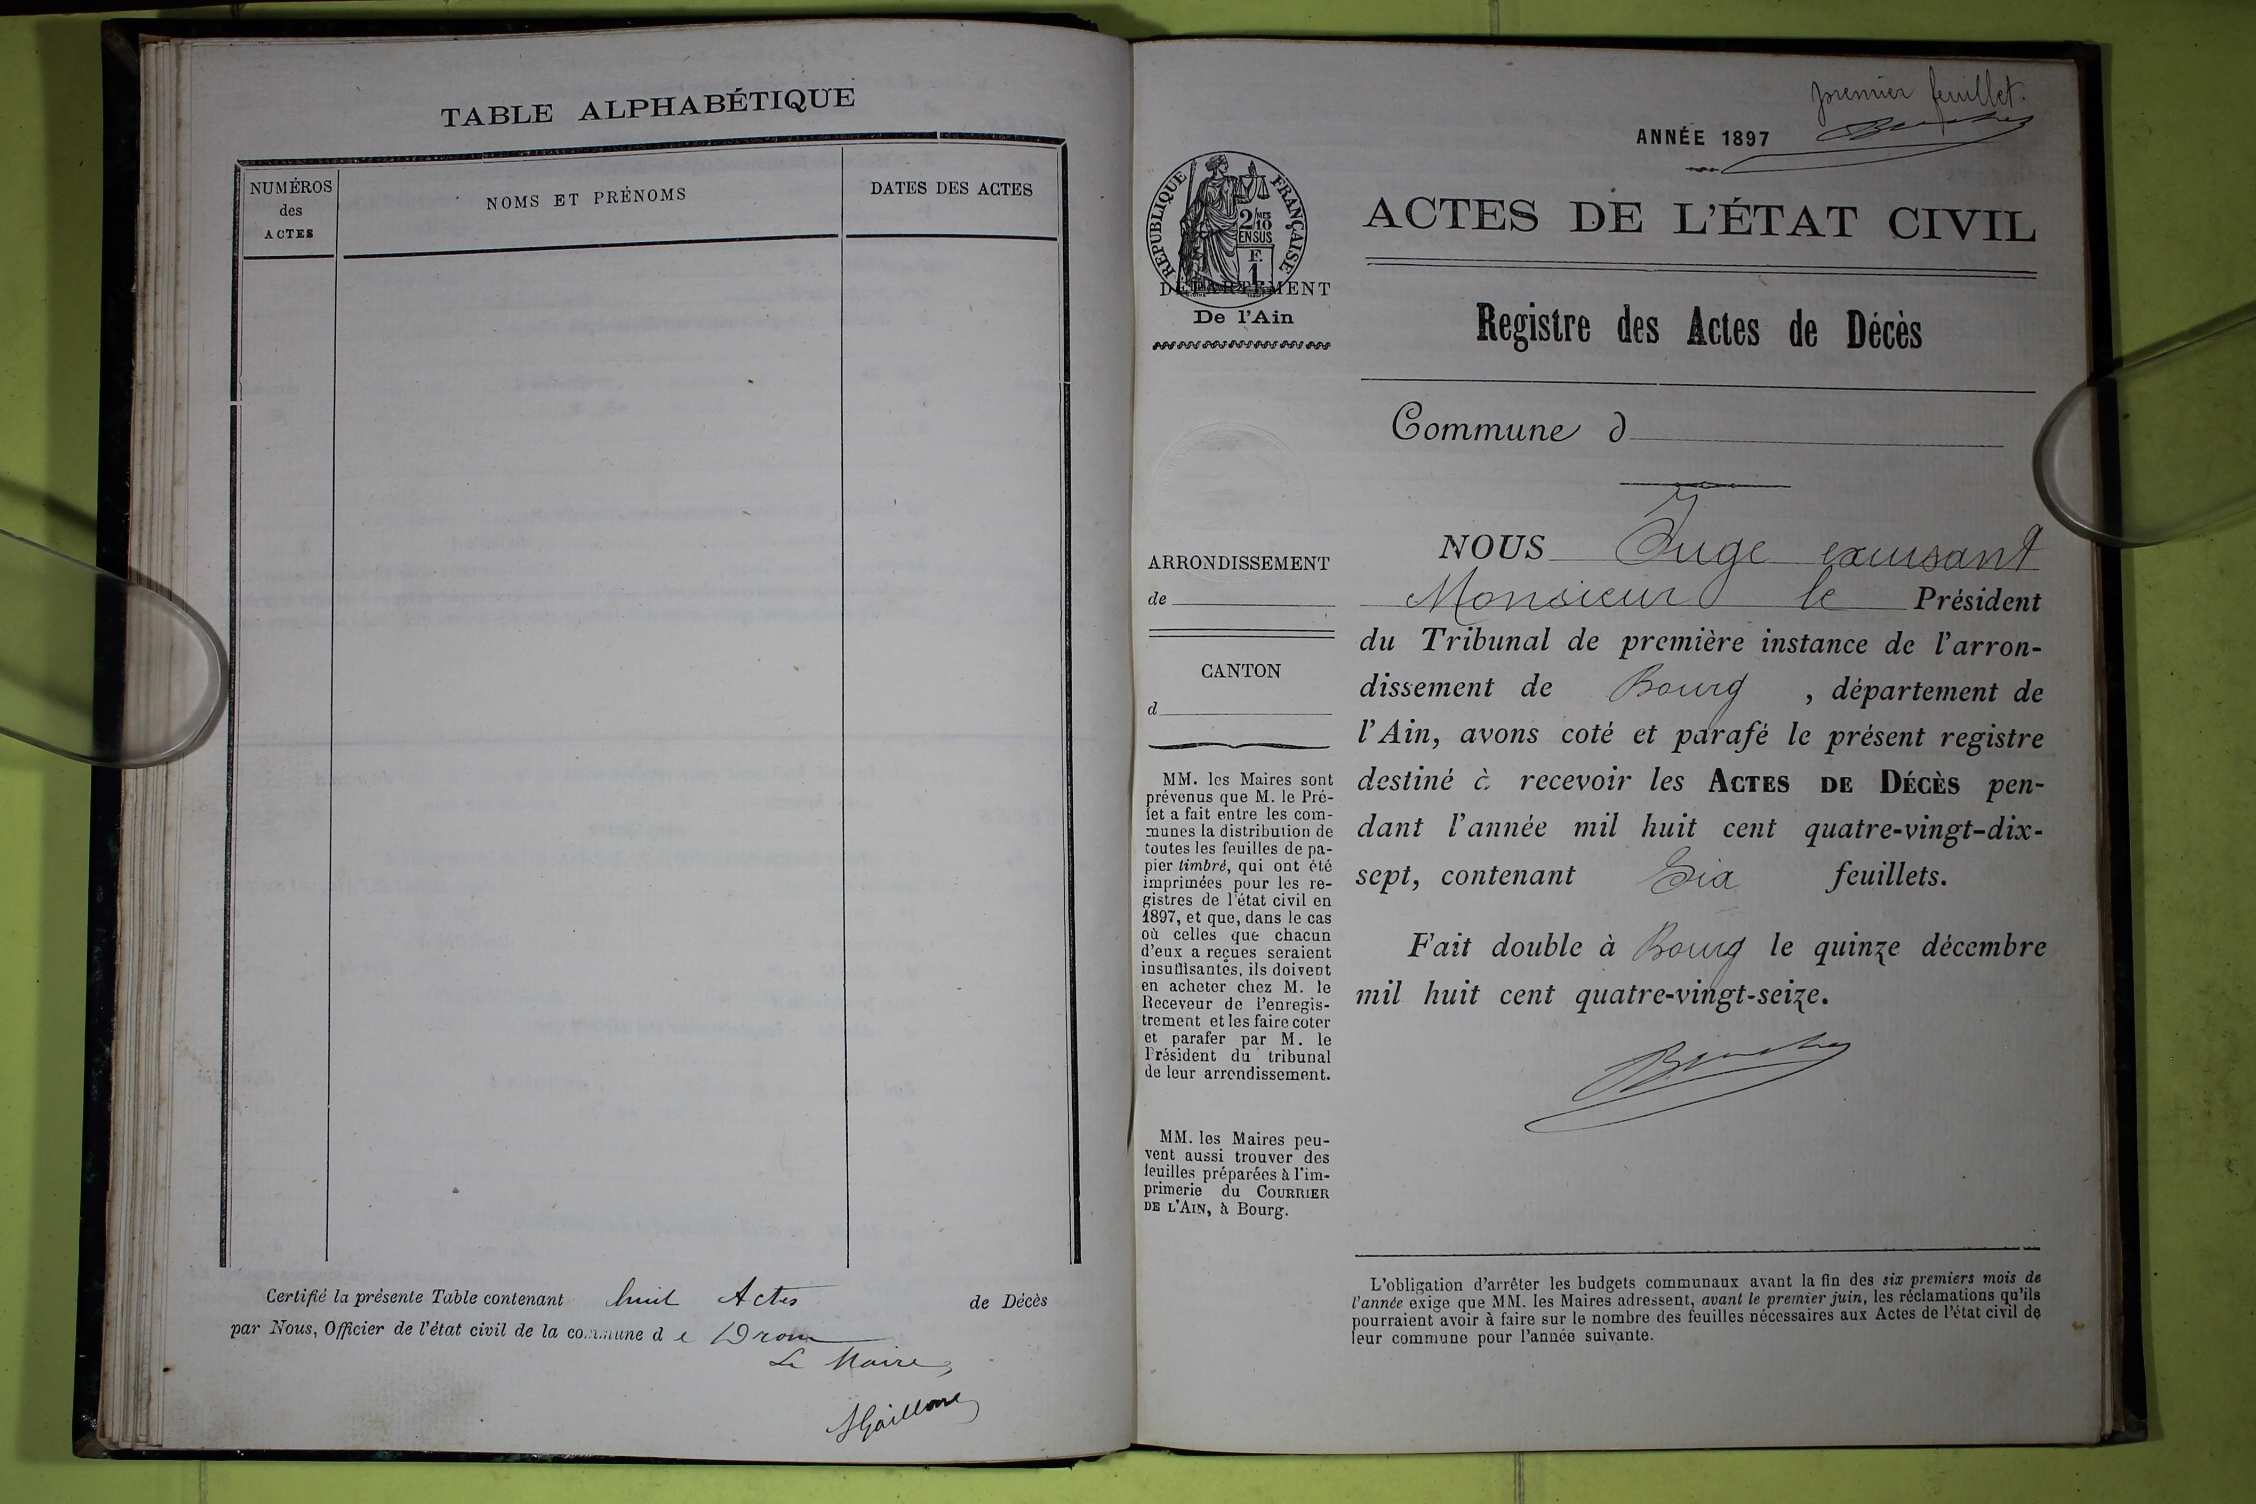 TABLE ALPHABÉTIQUE
NUMÉROS
des
ACTES
NOMS ET PRÉNOMS
DATES DES ACTES
Certifié la présente Table contenant huit Actes de Décès
par Nous, Officier de l'état civil de la commune de Drom
Le Maire,
premier feuillet.
ANNÉE 1897
RÉPUBLIQUE FRANÇAISE
2/10 MES
EN SUS
F.
1
DÉPARTEMENT
De l'Ain
ACTES DE L'ÉTAT CIVIL
Registre des Actes de Décès
Commune d
ARRONDISSEMENT
de
CANTON
d
MM. les Maires sont
prévenus que M. le Pré-
fet a fait entre les com-
munes la distribution de
toutes les feuilles de pa-
pier timbré, qui ont été
imprimées pour les re-
gistres de l'état civil en
1897, et que, dans le cas
où celles que chacun
d'eux a reçues seraient
insuffisantes, ils doivent
en acheter chez M. le
Receveur de l'enregis-
trement et les faire coter
et parafer par M. le
Président du tribunal
de leur arrondissement.
MM. les Maires peu-
vent aussi trouver des
feuilles préparées à l'im-
primerie du COURRIER
DE L'AIN, à Bourg.
NOUS Juge excusant
Monsieur le Président
du Tribunal de première instance de l'arron-
dissement de Bourg, département de
l'Ain, avons coté et parafé le présent registre
destiné à recevoir les ACTES DE DÉCÈS pen-
dant l'année mil huit cent quatre-vingt-dix-
sept, contenant Six feuillets.
Fait double à Bourg le quinze décembre
mil huit cent quatre-vingt-seize.
L'obligation d'arrêter les budgets communaux avant la fin des six premiers mois de
l'année exige que MM. les Maires adressent, avant le premier juin, les réclamations qu'ils
pourraient avoir à faire sur le nombre des feuilles nécessaires aux Actes de l'état civil de
leur commune pour l'année suivante.